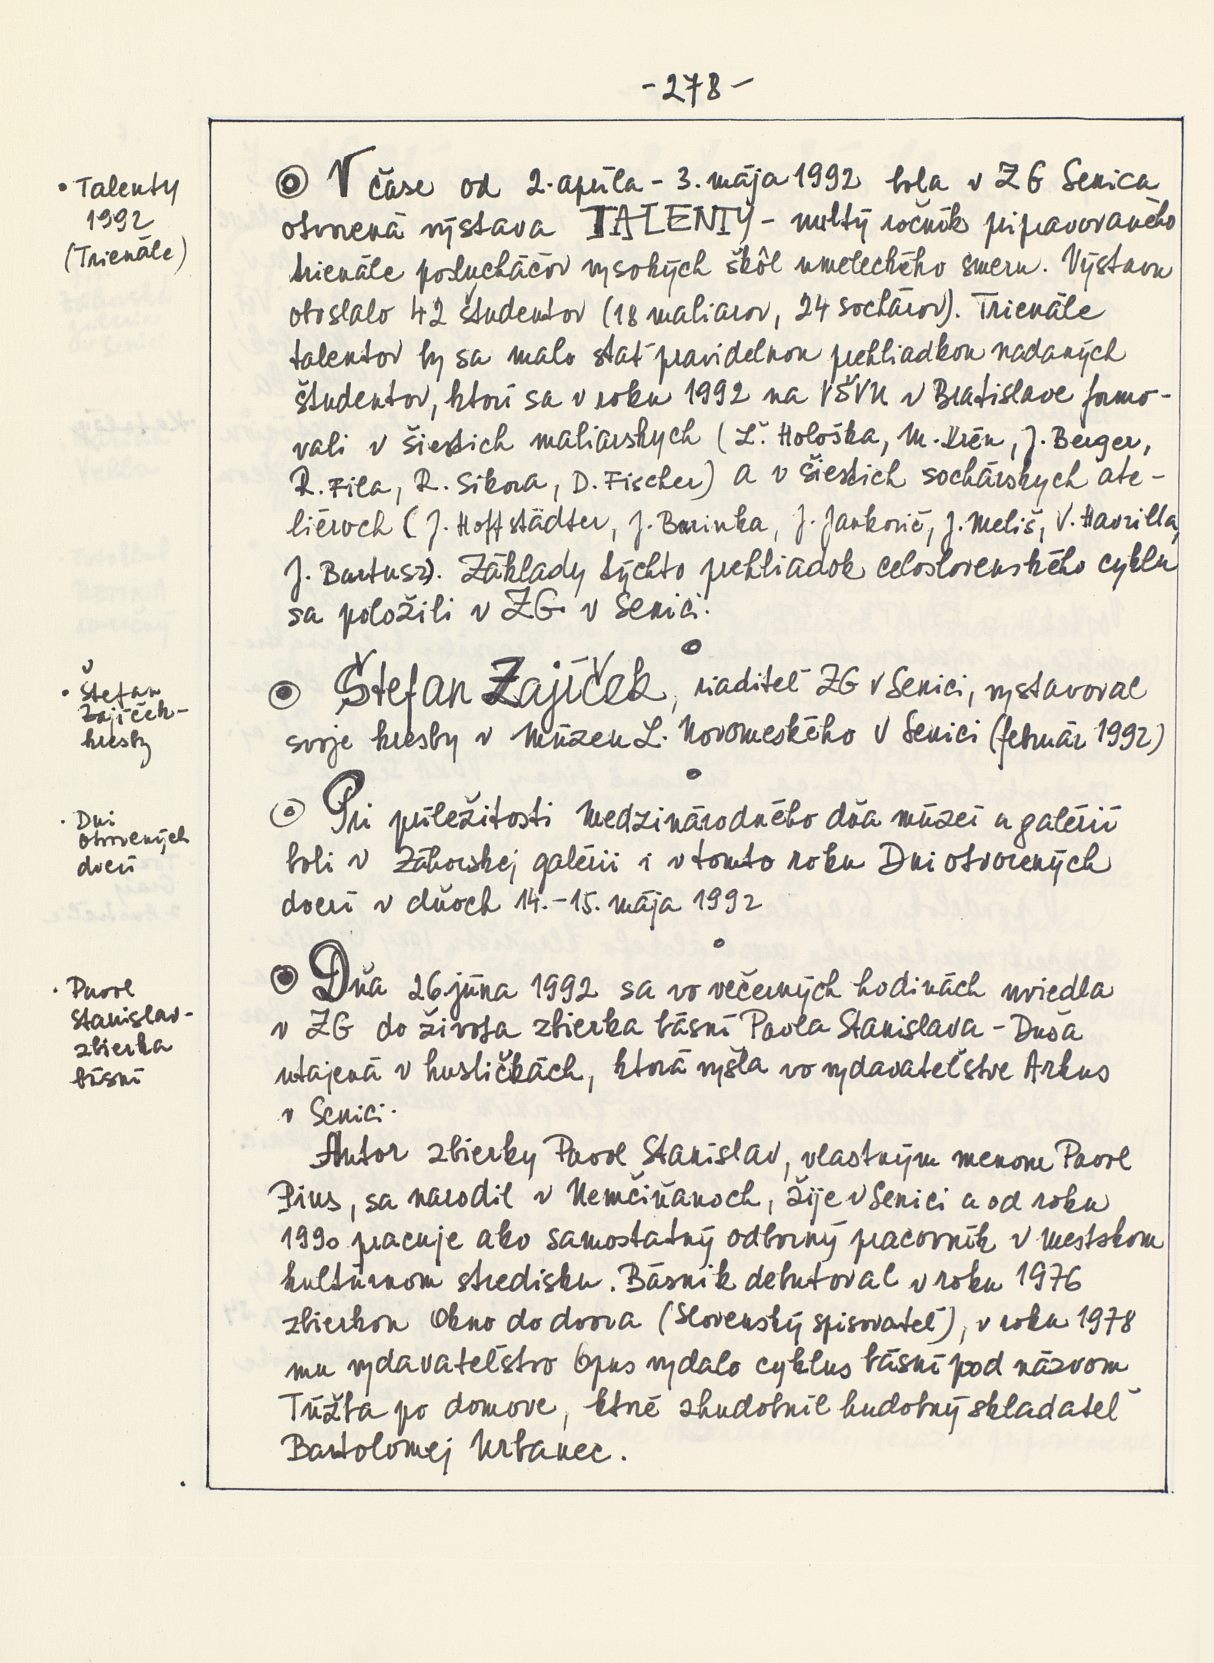 -278-
• Talenty
1992
(Trienále)
V čase od 2. apríla - 3. mája 1992 bola v ZG Senica
otvorená výstava TALENTY - nultý ročník pripravovaného
trienále poslucháčov vysokých škôl umeleckého smeru. Výstavu
oboslalo 42 študentov (18 maliarov, 24 sochárov). Trienále
talentov by sa malo stať pravidelnou prehliadkou nadaných
študentov, ktorí sa v roku 1992 na VŠVU v Bratislave formo-
vali v šiestich maliarskych (Ľ. Hološka, M. Krén, J. Berger,
R. Fila, R. Sikora, D. Fischer) a v šiestich sochárskych ate-
liéroch (J. Hoffstädter, J. Barinka, J. Jankovič, J. Meliš, V. Havrilla,
J. Bartusz). Základy týchto prehliadok celoslovenského cyklu
sa položili v ZG v Senici.
• Štefan
Zajíček-
kresby
Štefan Zajíček, riaditeľ ZG v Senici, vystavoval
svoje kresby v Múzeu L. Novomeského v Senici (február 1992)
· Dni
otvorených
dverí
Pri príležitosti Medzinárodného dňa múzeí a galérií
boli v Záhorskej galérii i v tomto roku Dni otvorených
dverí v dňoch 14.-15. mája 1992
· Pavol
Stanislav-
zbierka
básní
Dňa 26. júna 1992 sa vo večerných hodinách uviedla
v ZG do života zbierka básní Pavla Stanislava - Duša
utajená v husličkách, ktorá vyšla vo vydavateľstve Arkus
v Senici.
Autor zbierky Pavol Stanislav, vlastným menom Pavol
Pius, sa narodil v Nemčiňanoch, žije v Senici a od roku
1990 pracuje ako samostatný odborný pracovník v mestskom
kultúrnom stredisku. Básnik debutoval v roku 1976
zbierkou Okno do dvora (Slovenský spisovateľ), v roku 1978
mu vydavateľstvo Opus vydalo cyklus básní pod názvom
Túžba po domove, ktoré zhudobnil hudobný skladateľ
Bartolomej Urbanec.